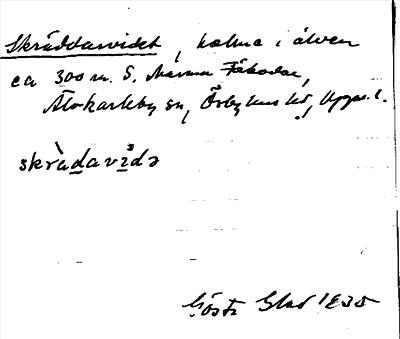 Skräddarvidet, holme i älven
ca 300 m. S. Marma Fäbodar,
Älvkarleby sn, Örbyhus hd, Upps. l.
skrὰdavìdə
Gösta Glad 1935